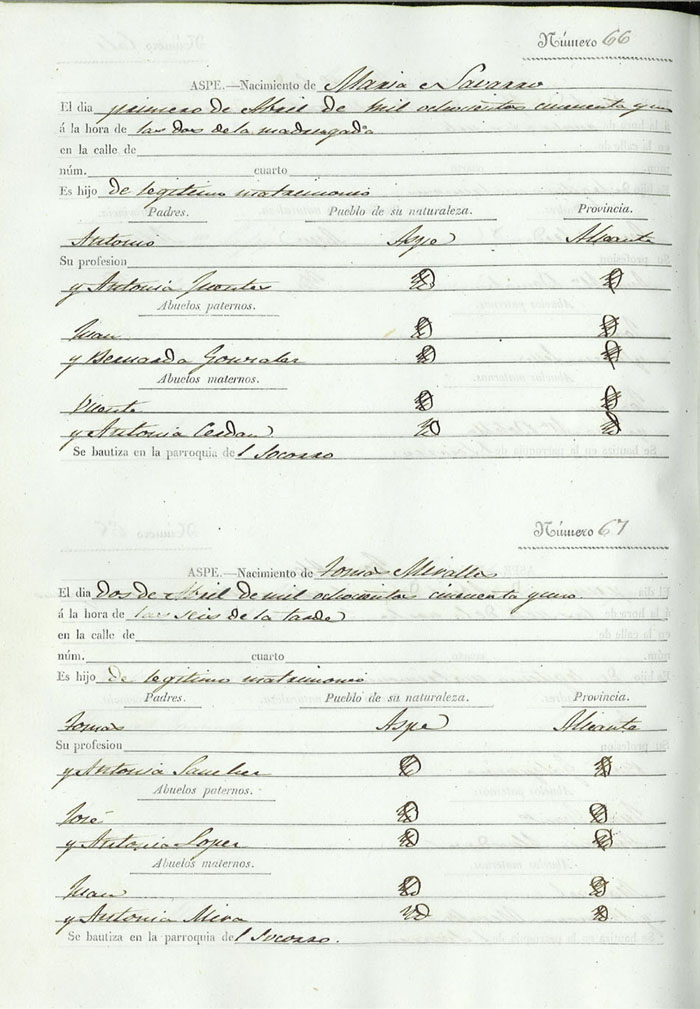 Número 66
ASPE.—Nacimiento de Maria Navarro
El dia primero de Abril de mil ochocientos cincuenta y uno
á la hora de las dos de la madrugada
en la calle de
núm. cuarto
Es hijo de legitimo matrimonio
Padres. Pueblo de su naturaleza. Provincia.
Antonio Aspe Alicante
Su profesion
y Antonia
Abuelos paternos.
Juan
y Bernarda Gonzalez
Abuelos maternos.
Vicente
y Antonia Cerdan
Se bautiza en la parroquia de l Socorro
Número 67
ASPE.—Nacimiento de Tomas Miralles
El dia dos de Abril de mil ochocientos cincuenta y uno
á la hora de las seis de la tarde
en la calle de
núm. cuarto
Es hijo de legitimo matrimonio
Padres. Pueblo de su naturaleza. Provincia.
Tomas Aspe Alicante
Su profesion
y Antonia Sanchez
Abuelos paternos.
José
y Antonia Lopez
Abuelos maternos.
Juan
y Antonia Mira
Se bautiza en la parroquia de l Socorro.